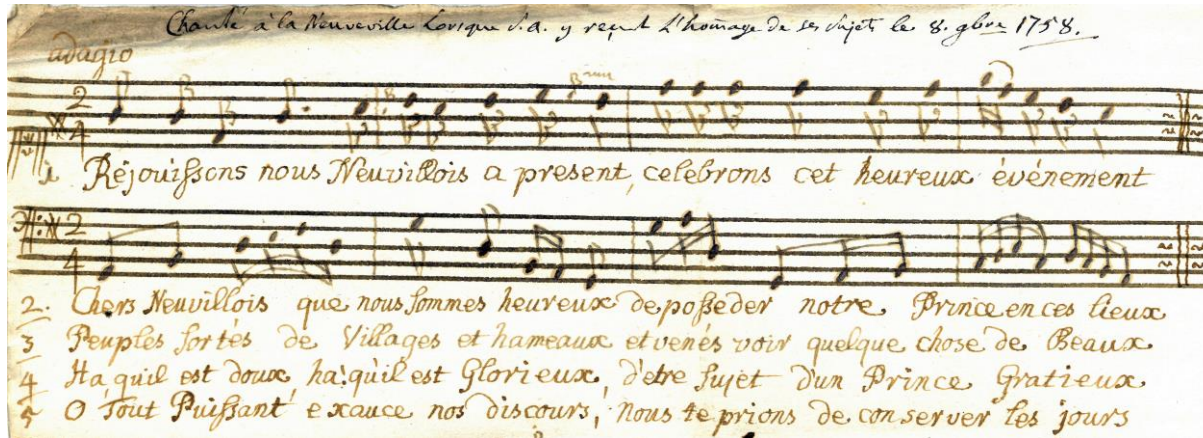 Chanté à la Neuveville Lorsque S.A. y reçut L'homage de ses sujets le 8. 9bre 1758.
adagio
2
4
1 Réjouissons nous Neuvillois a present, celebrons cet heureux événement
2
4
2. Chers Neuvillois que nous sommes heureux de posseder notre Prince en ces lieux
3 Peuples sortés de Villages et hameaux et venés voir quelque chose de Beaux
4 Ha qu'il est doux ha! qu'il est Glorieux, d'etre sujet d'un Prince Gratieux
5 O Tout Puissant exauce nos discours, nous te prions de conserver les jours